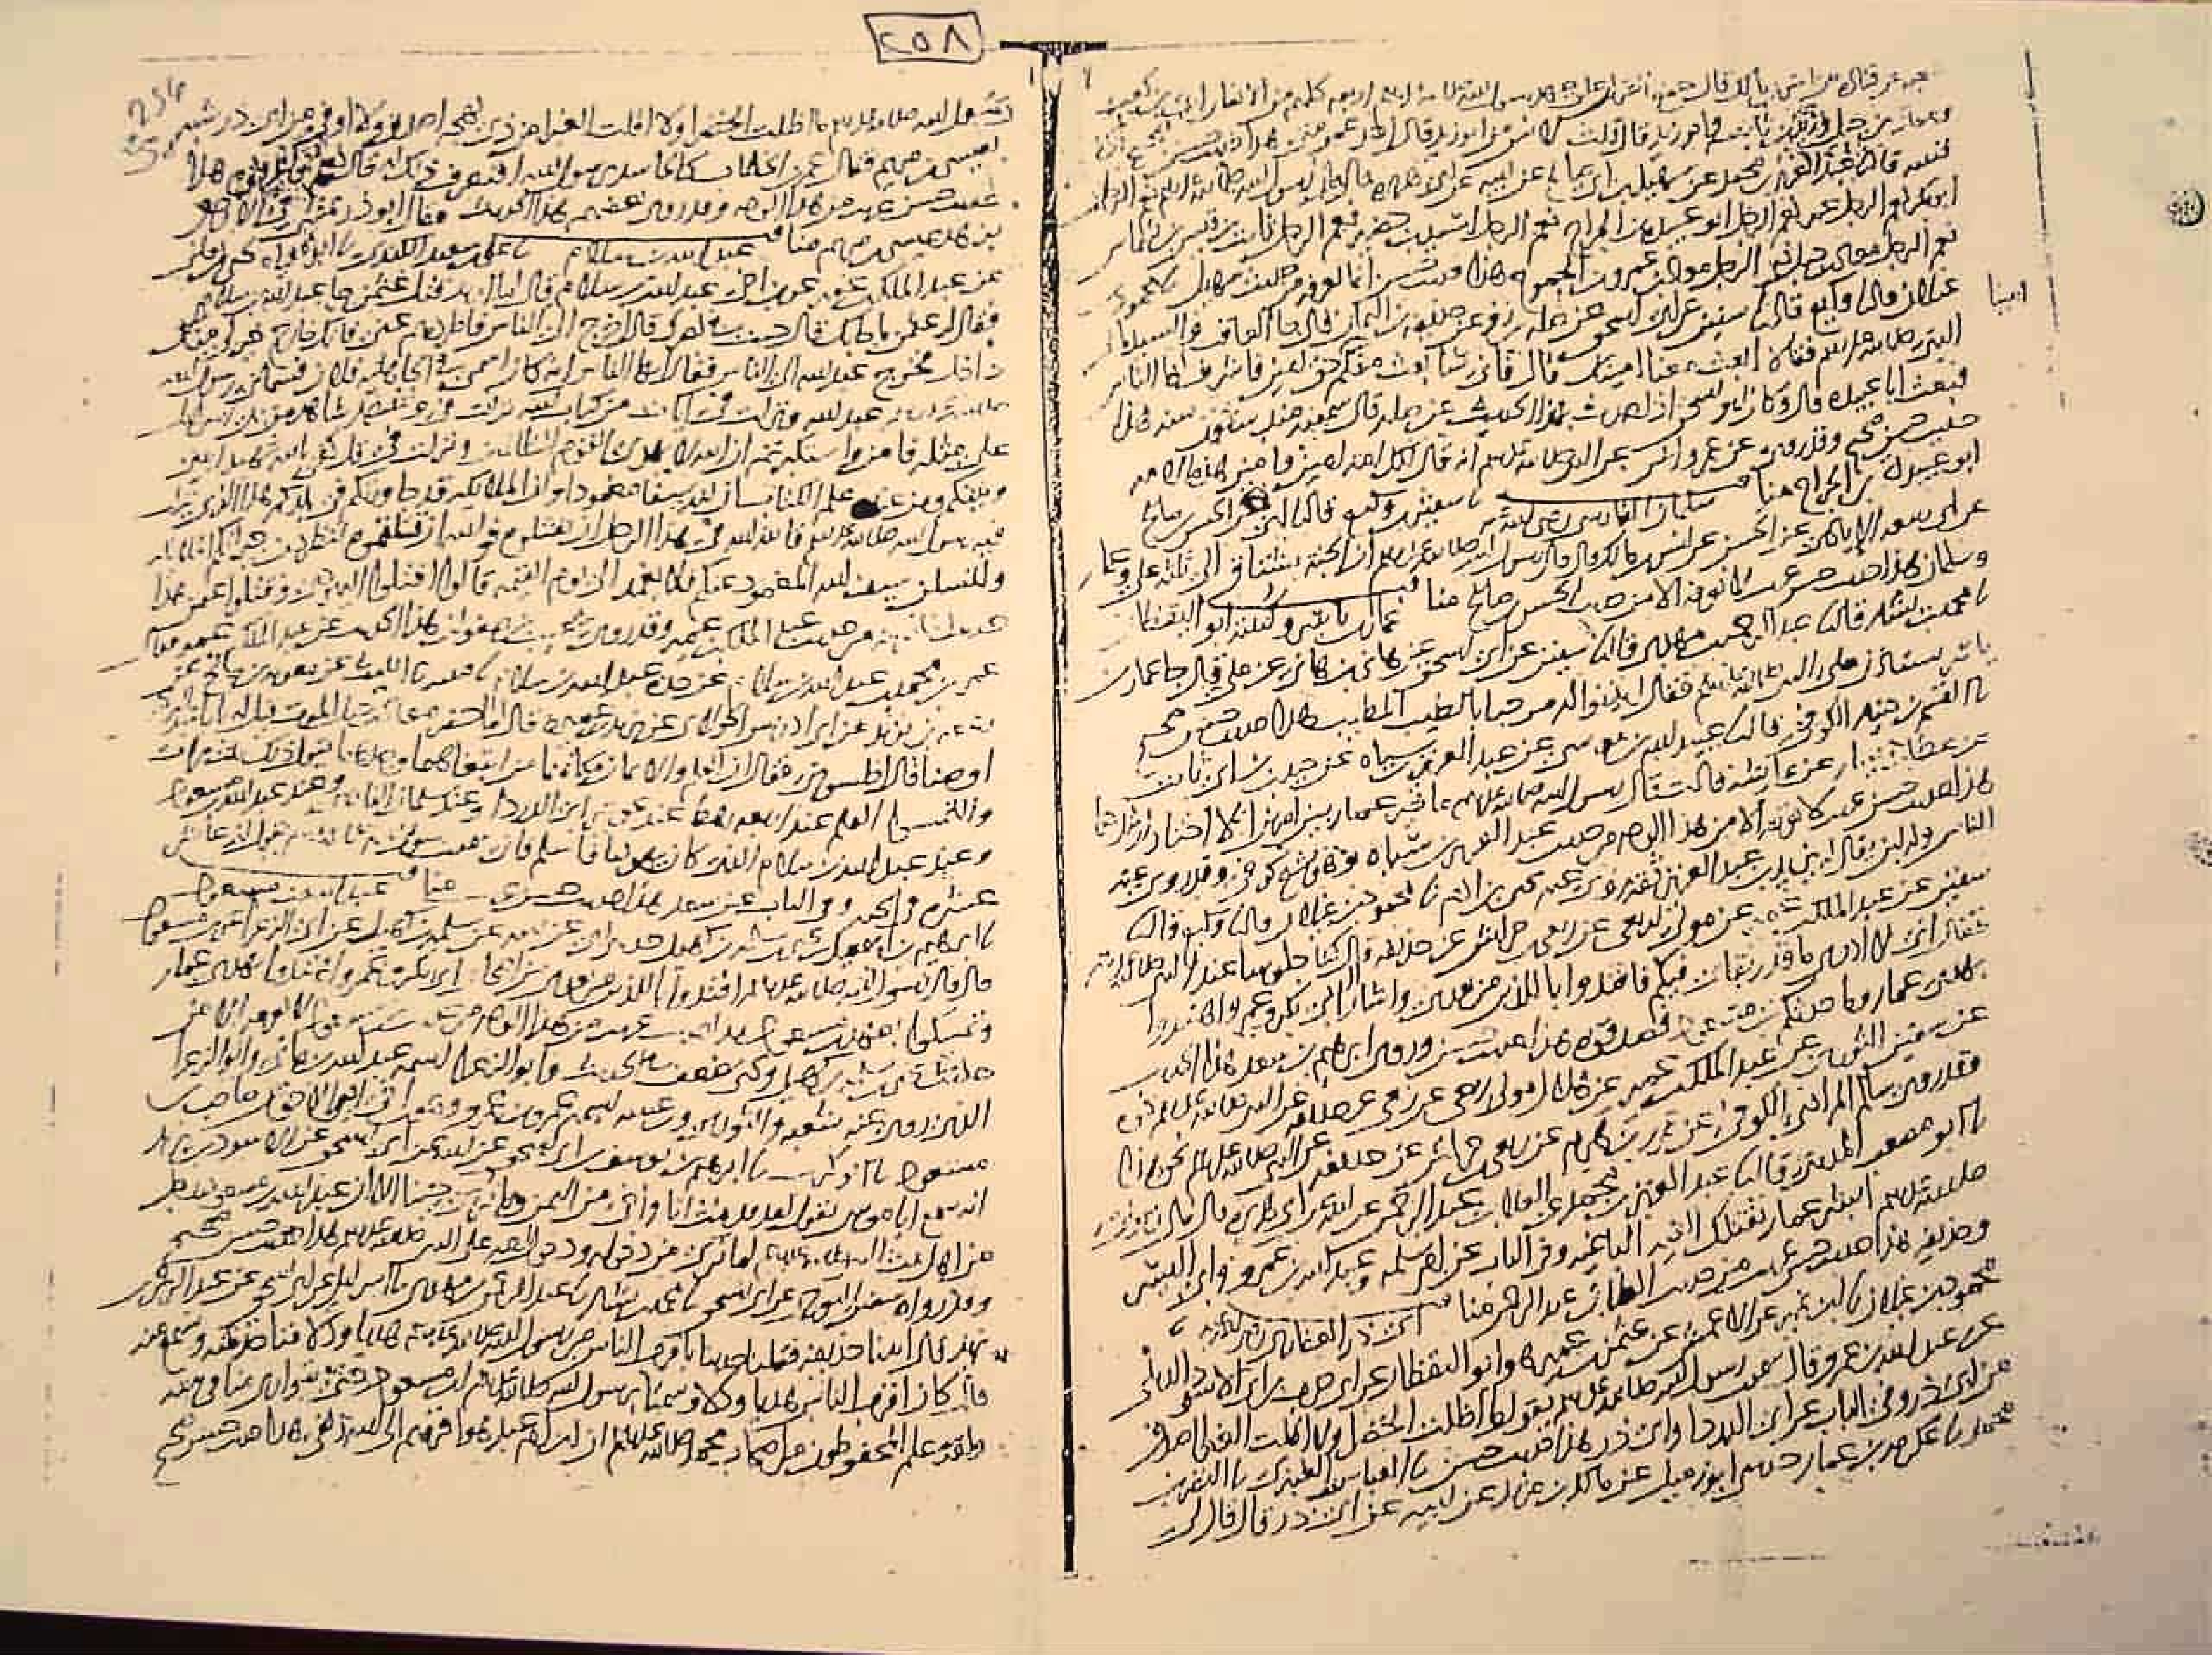 ٢٥٨
254
جمع القرآن على عهد رسول الله صلى الله عليه وسلم اربعة كلهم من الانصار ابي بن كعب
ومعاذ بن جبل وزيد بن ثابت وابو زيد قال قلت لانس من ابو زيد قال احد عمومتي هذا حديث حسن صحيح
قتيبة قال عبد العزيز بن محمد عن سهيل بن ابي صالح عن ابيه عن ابي هريرة قال قال رسول الله صلى الله عليه وسلم نعم الرجل
ابو بكر نعم الرجل عمر نعم الرجل ابو عبيدة بن الجراح نعم الرجل اسيد بن حضير نعم الرجل ثابت بن قيس بن شماس
نعم الرجل معاذ بن جبل نعم الرجل معاذ بن عمرو بن الجموح هذا حديث حسن انما نعرفه من حديث سهيل محمود بن
غيلان قال نا وكيع قال نا سفين عن ابي اسحق عن صلة بن زفر عن حذيفة بن اليمان قال جا العاقب والسيد الى
النبي صلى الله عليه وسلم فقالا ابعث معنا امينك قال فاني سابعث معكم حق امين فاشرف لها الناس
فبعث ابا عبيدة قال وكان ابو اسحق اذا حدث بهذا الحديث عن صلة قال سمعته منذ ستين سنة هذا
حديث حسن صحيح وقد روي عن عمر وانس عن النبي صلى الله عليه وسلم انه قال لكل امة امين وامين هذه الامة
ابو عبيدة بن الجراح مناقب سلمان الفارسي رضي الله عنه نا سفين بن وكيع قال نا ابي عن الحسن بن صالح
عن ابي ربيعة الايادي عن الحسن عن انس بن مالك قال قال رسول الله صلى الله عليه وسلم ان الجنة تشتاق الى ثلثة علي وعمار
وسلمان هذا حديث حسن غريب لا نعرفه الا من حديث الحسن بن صالح مناقب عمار بن ياسر وكنيته ابو اليقظان
نا محمد بن بشار قال نا عبد الرحمن بن مهدي قال نا سفين عن ابي اسحق عن هانئ بن هانئ عن علي قال جا عمار بن
ياسر يستاذن على النبي صلى الله عليه وسلم فقال ائذنوا له مرحبا بالطيب المطيب هذا حديث حسن صحيح
نا القسم بن دينار الكوفي قال نا عبيد الله بن موسى عن عبد العزيز بن سياه عن حبيب بن ابي ثابت
عن عطا بن يسار عن عائشة قالت قال رسول الله صلى الله عليه وسلم ما خير عمار بين امرين الا اختار ارشدهما
هذا حديث حسن غريب لا نعرفه الا من هذا الوجه من حديث عبد العزيز بن سياه وهو شيخ كوفي وقد روى عنه
الناس وله ابن يقال له يزيد بن عبد العزيز ثقة روى عنه يحيى بن ادم نا محمود بن غيلان قال نا وكيع قال نا
سفين عن عبد الملك بن عمير عن مولى لربعي عن ربعي بن حراش عن حذيفة قال كنا جلوسا عند النبي صلى الله عليه وسلم
فقال اني لا ادري ما قدر بقائي فيكم فاقتدوا باللذين من بعدي واشار الى ابي بكر وعمر واهتدوا
بهدي عمار وما حدثكم ابن مسعود فصدقوه هذا حديث حسن وروى ابرهيم بن سعد هذا الحديث
عن سفين الثوري عن عبد الملك بن عمير عن هلال مولى ربعي عن ربعي عن حذيفة عن النبي صلى الله عليه وسلم نحوه
وقد روى سالم المرادي الكوفي عن عمرو بن هرم عن ربعي بن حراش عن حذيفة عن النبي صلى الله عليه وسلم نحو هذا
نا ابو مصعب المديني قال نا عبد العزيز بن محمد عن العلا بن عبد الرحمن عن ابيه عن ابي هريرة قال قال رسول الله
صلى الله عليه وسلم ابشر عمار تقتلك الفئة الباغية وفي الباب عن ام سلمة وعبد الله بن عمرو وابي اليسر
وحذيفة هذا حديث حسن غريب من حديث العلا بن عبد الرحمن مناقب ابي ذر الغفاري رضي الله عنه
محمود بن غيلان نا ابن نمير عن الاعمش عن عثمن بن عمير وهو ابو اليقظان عن ابي حرب بن ابي الاسود الديلي
عن عبد الله بن عمرو قال سمعت رسول الله صلى الله عليه وسلم يقول ما اظلت الخضرا ولا اقلت الغبرا اصدق
من ابي ذر وفي الباب عن ابي الدردا وابي ذر هذا حديث حسن نا العباس العنبري نا النضر بن
محمد نا عكرمة بن عمار حدثني ابو زميل عن مالك بن مرثد عن ابيه عن ابي ذر قال قال لي
رسول الله صلى الله عليه وسلم ما اظلت الخضرا ولا اقلت الغبرا من ذي لهجة اصدق ولا اوفى من ابي ذر شبه
عيسى بن مريم فقال عمر بن الخطاب كالحاسد يرسول الله افتعرف ذلك له قال نعم فاعرفوه هذا
حديث حسن غريب من هذا الوجه وقد روى بعضهم هذا الحديث فقال ابو ذر يمشي في الارض
بزهد عيسى بن مريم مناقب عبد الله بن سلام نا علي بن سعيد الكندي نا ابو محياة يحيى بن يعلى
عن عبد الملك بن عمير عن ابن اخي عبد الله بن سلام قال لما اريد قتل عثمن جا عبد الله بن سلام
فقال له عثمن ما جا بك قال جئت في نصرك قال اخرج الى الناس فاطردهم عني فانك خارج خير لي منك
داخل فخرج عبد الله الى الناس فقال ايها الناس انه كان اسمي في الجاهلية فلان فسماني رسول الله
صلى الله عليه وسلم عبد الله ونزلت في ايات من كتاب الله نزلت في وشهد شاهد من بني اسرائيل
على مثله فامن واستكبرتم ان الله لا يهدي القوم الظالمين ونزلت في قل كفى بالله شهيدا بيني
وبينكم ومن عنده علم الكتاب ان لله سيفا مغمودا وان الملائكة قد جاورتكم في بلدكم هذا الذي نزل
فيه رسول الله صلى الله عليه وسلم فالله الله في هذا الرجل ان تقتلوه فوالله ان قتلتموه لتطردن جيرانكم الملائكة
ولتسلن سيف الله المغمود عنكم فلا يغمد الى يوم القيمة قالوا اقتلوا اليهودي وقتلوا عثمن هذا
حديث غريب انما نعرفه من حديث عبد الملك بن عمير وقد روى شعيب بن صفوان هذا الحديث عن عبد الملك بن عمير فقال
عمر بن محمد بن عبد الله بن سلام عن جده عبد الله بن سلام نا قتيبة نا الليث عن معوية بن صالح عن
ربيعة بن يزيد عن ابي ادريس الخولاني عن يزيد بن عميرة قال لما حضر معاذ بن جبل الموت قيل له يا ابا عبد الرحمن
اوصنا قال اجلسوني فقال ان العلم والايمان مكانهما من ابتغاهما وجدهما يقول ذلك ثلث مرات
والتمسوا العلم عند اربعة رهط عند عويمر ابي الدردا وعند سلمان الفارسي وعند عبد الله بن مسعود
وعند عبد الله بن سلام الذي كان يهوديا فاسلم فاني سمعت رسول الله صلى الله عليه وسلم يقول انه عاشر
عشرة في الجنة وفي الباب عن سعد هذا حديث حسن غريب مناقب عبد الله بن مسعود
نا ابرهيم بن اسمعيل بن يحيى بن سلمة بن كهيل حدثني ابي عن ابيه عن سلمة بن كهيل عن ابي الزعرا عن ابن مسعود
قال قال رسول الله صلى الله عليه وسلم اقتدوا باللذين من بعدي من اصحابي ابي بكر وعمر واهتدوا بهدي عمار
وتمسكوا بعهد ابن مسعود هذا حديث غريب من هذا الوجه من حديث ابن مسعود لا نعرفه الا من
حديث يحيى بن سلمة بن كهيل ويحيى يضعف في الحديث وابو الزعرا اسمه عبد الله بن هانئ وابو الزعرا
الذي روى عنه شعبة والثوري وابن عيينة اسمه عمرو بن عمرو وهو ابن اخي ابي الاحوص صاحب ابن
مسعود نا ابو كريب نا ابرهيم بن يوسف بن ابي اسحق عن ابيه عن ابي اسحق عن الاسود بن يزيد
انه سمع ابا موسى يقول لقد قدمت انا واخي من اليمن وما نرى حينا الا ان عبد الله بن مسعود رجل
من اهل بيت النبي صلى الله عليه وسلم لما نرى من دخوله ودخول امه على النبي صلى الله عليه وسلم هذا حديث حسن صحيح
وقد رواه سفين الثوري عن ابي اسحق نا محمد بن بشار نا عبد الرحمن بن مهدي نا اسرائيل عن ابي اسحق عن عبد الرحمن بن
يزيد قال اتينا حذيفة فقلنا حدثنا باقرب الناس من رسول الله صلى الله عليه وسلم هديا ودلا فناخذ عنه ونسمع منه
قال كان اقرب الناس هديا ودلا وسمتا برسول الله صلى الله عليه وسلم ابن مسعود حتى يتوارى منا في بيته
ولقد علم المحفوظون من اصحاب محمد صلى الله عليه وسلم ان ابن ام عبد هو من اقربهم الى الله زلفى هذا حديث حسن صحيح